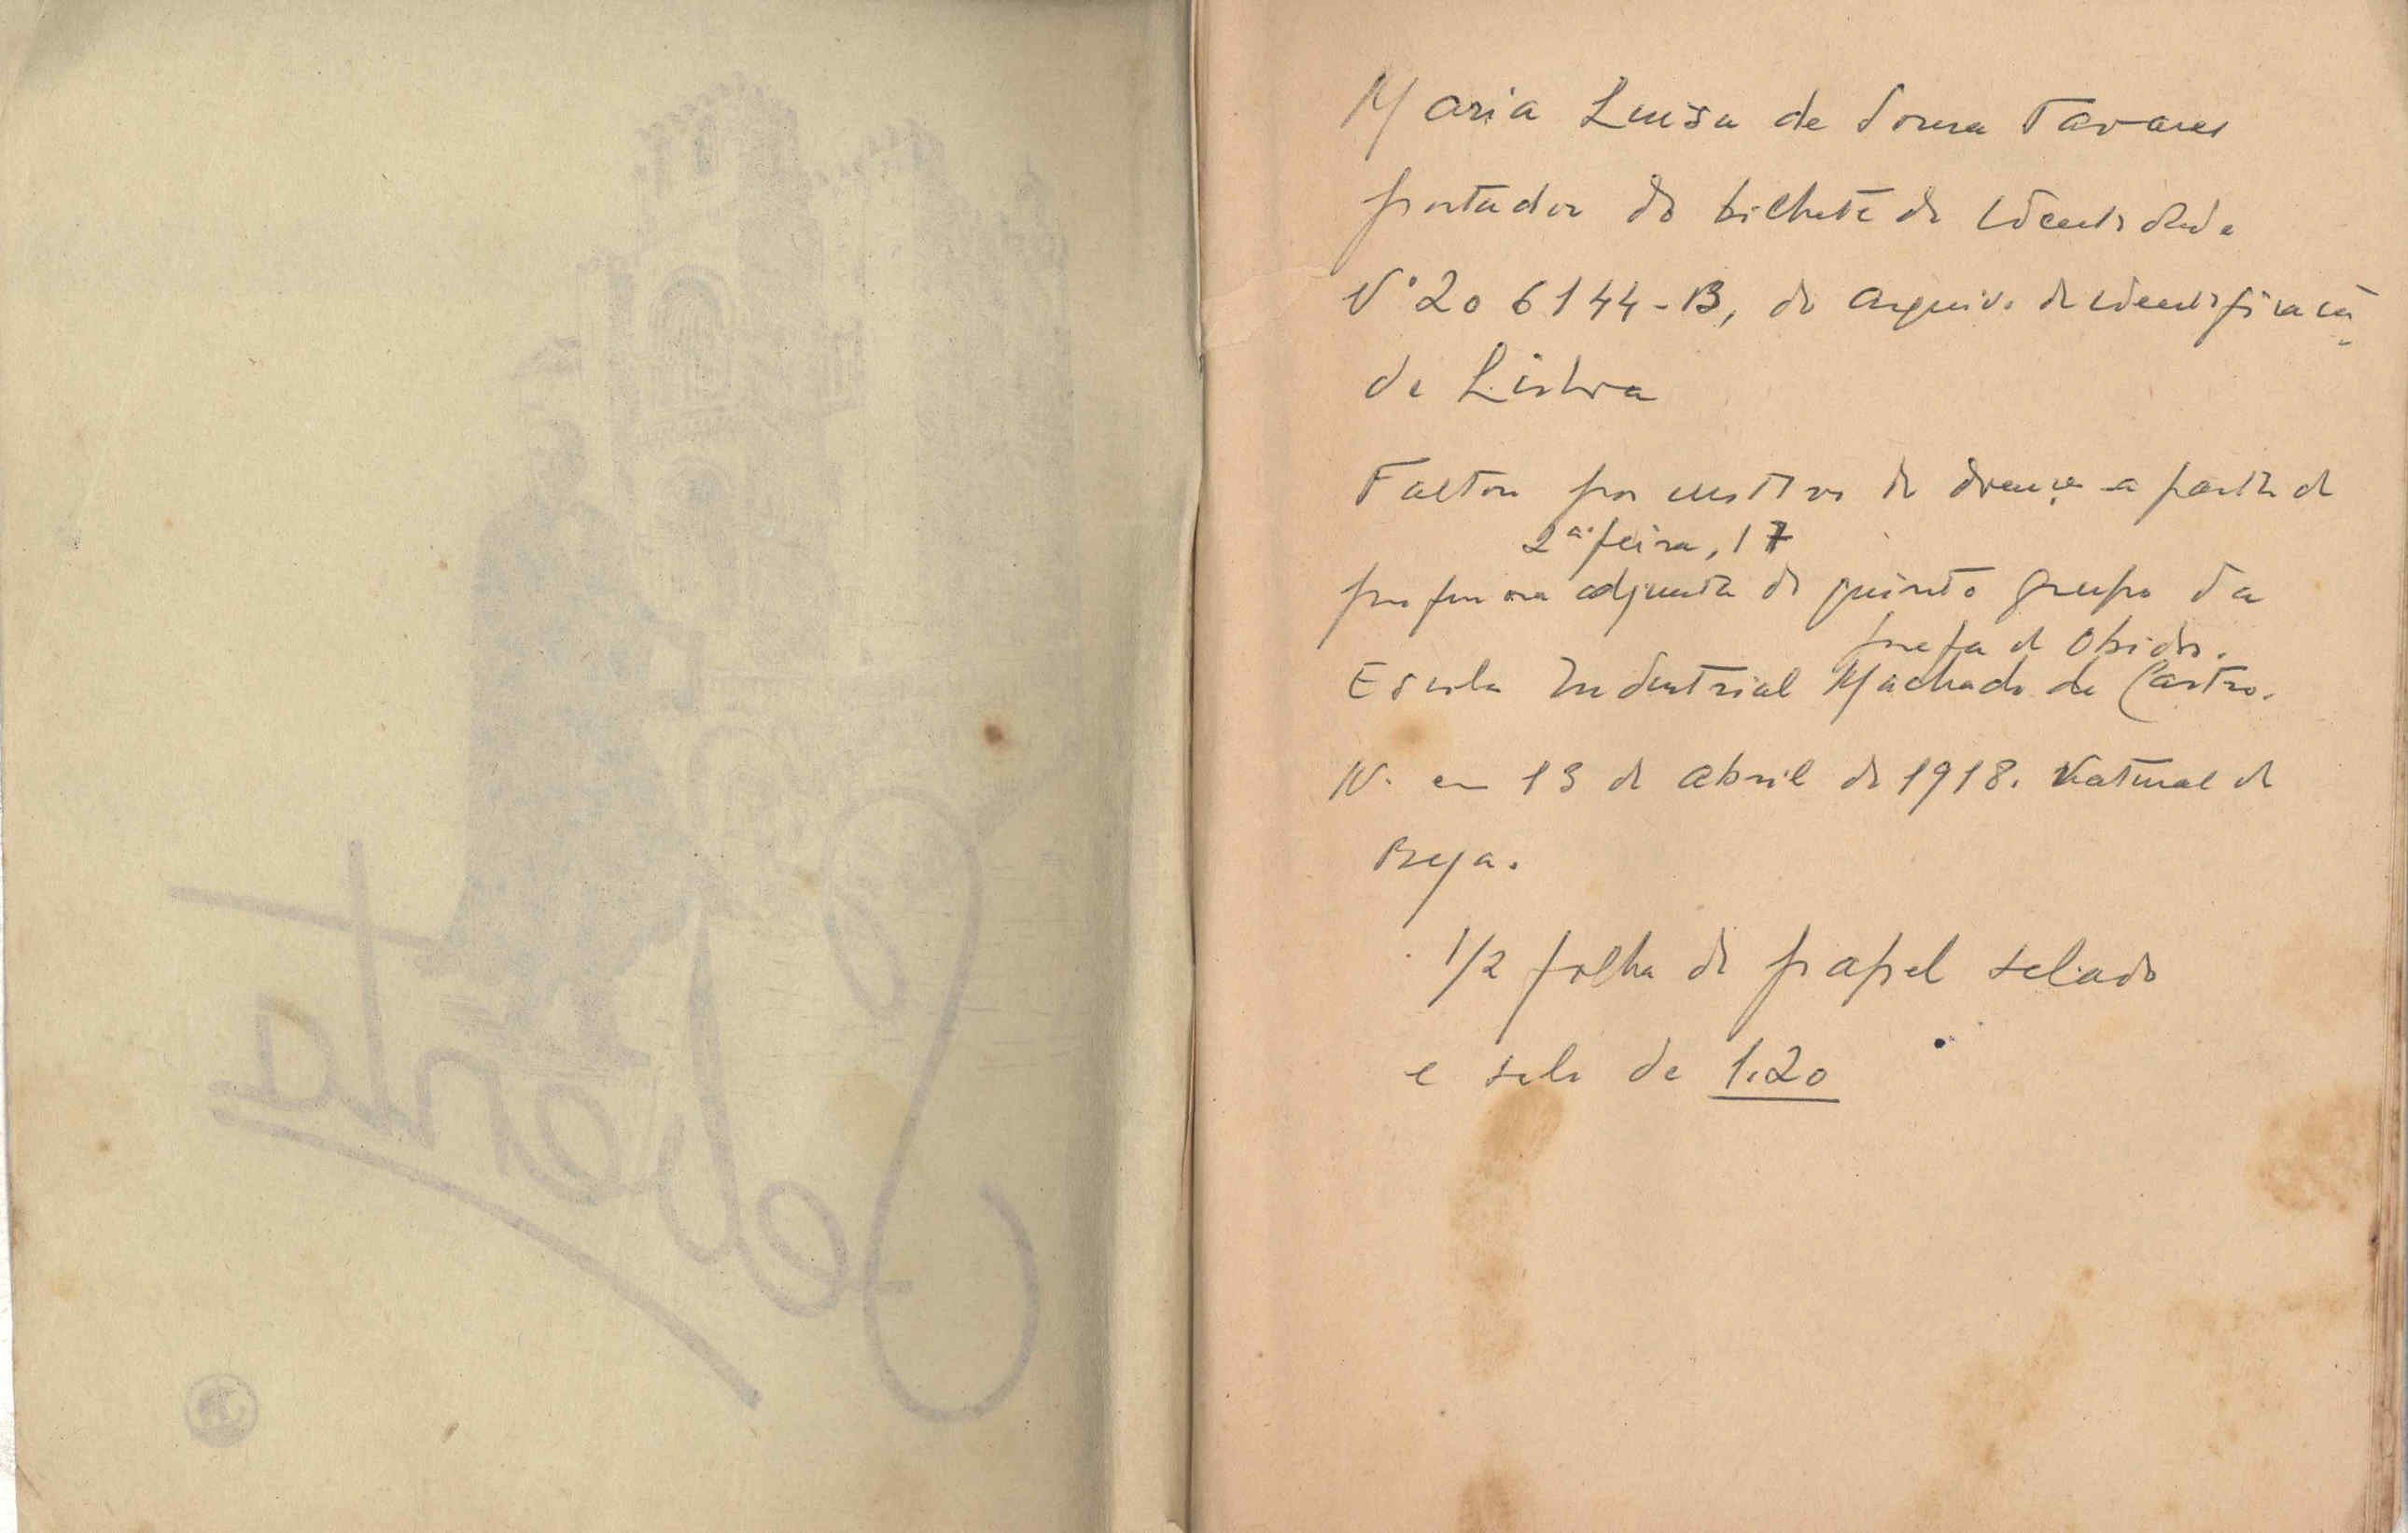 Sebenta
Maria Luisa de Sousa Tavares
portador do bilhete de identidade
Nº 206144-B, do arquivo de identificação
de Lisboa
Faltou por motivo de doença a partir de
2ª feira, 17
professora adjunta do quinto grupo da
Josefa de Obidos.
Escola Industrial Machado de Castro.
N. em 13 de abril de 1918. Natural de
Beja.
1/2 folha de papel selado
e selo de 1.20